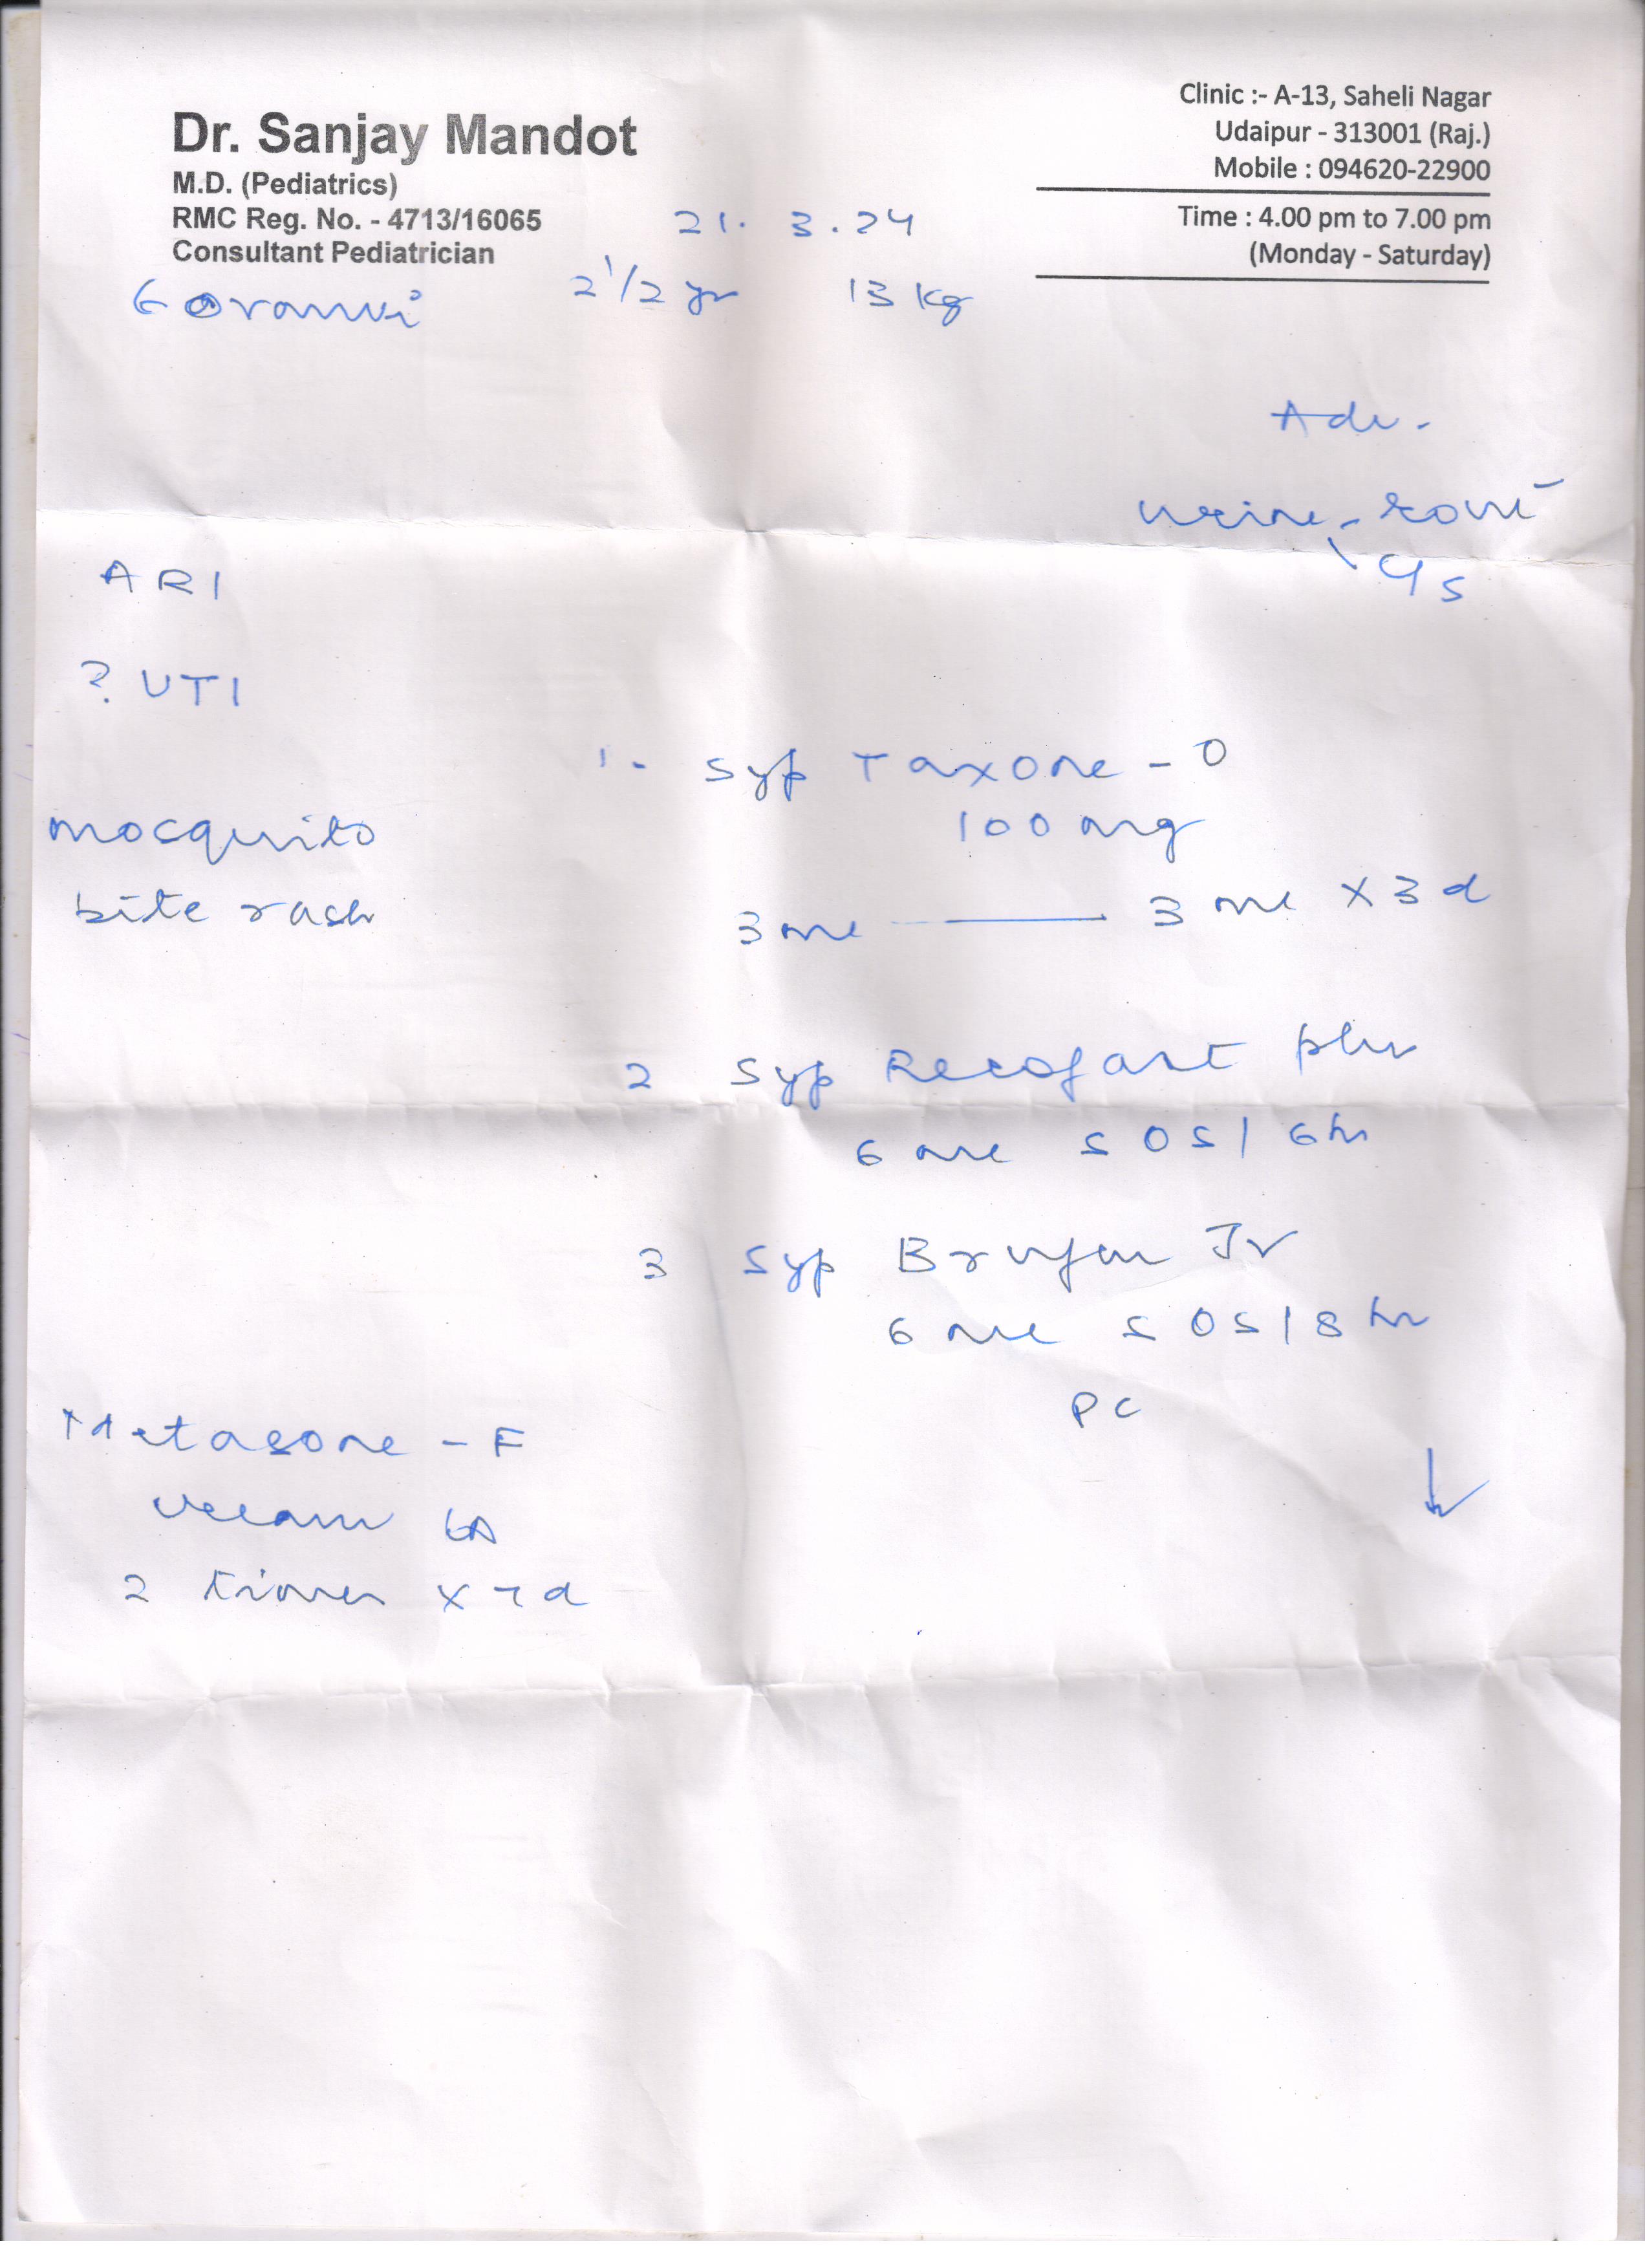 Dr. Sanjay Mandot
M.D. (Pediatrics)
RMC Reg. No. - 4713/16065
Consultant Pediatrician
Clinic :- A-13, Saheli Nagar
Udaipur - 313001 (Raj.)
Mobile : 094620-22900
Time : 4.00 pm to 7.00 pm
(Monday - Saturday)
21. 3. 24
2 1/2 yr 13 kg
Adv.
urine - routi
c/s
ARI
? UTI
mosquito
bite rash
1. Syp Taxone - O
100 mg
3 ml — 3 ml x 3 d
2 Syp Recofast plus
6 ml SOS / 6 hr
3 Syp Brufen Jr
6 ml SOS / 8 hr
PC
Metasone - F
cream LA
2 times x 7 d